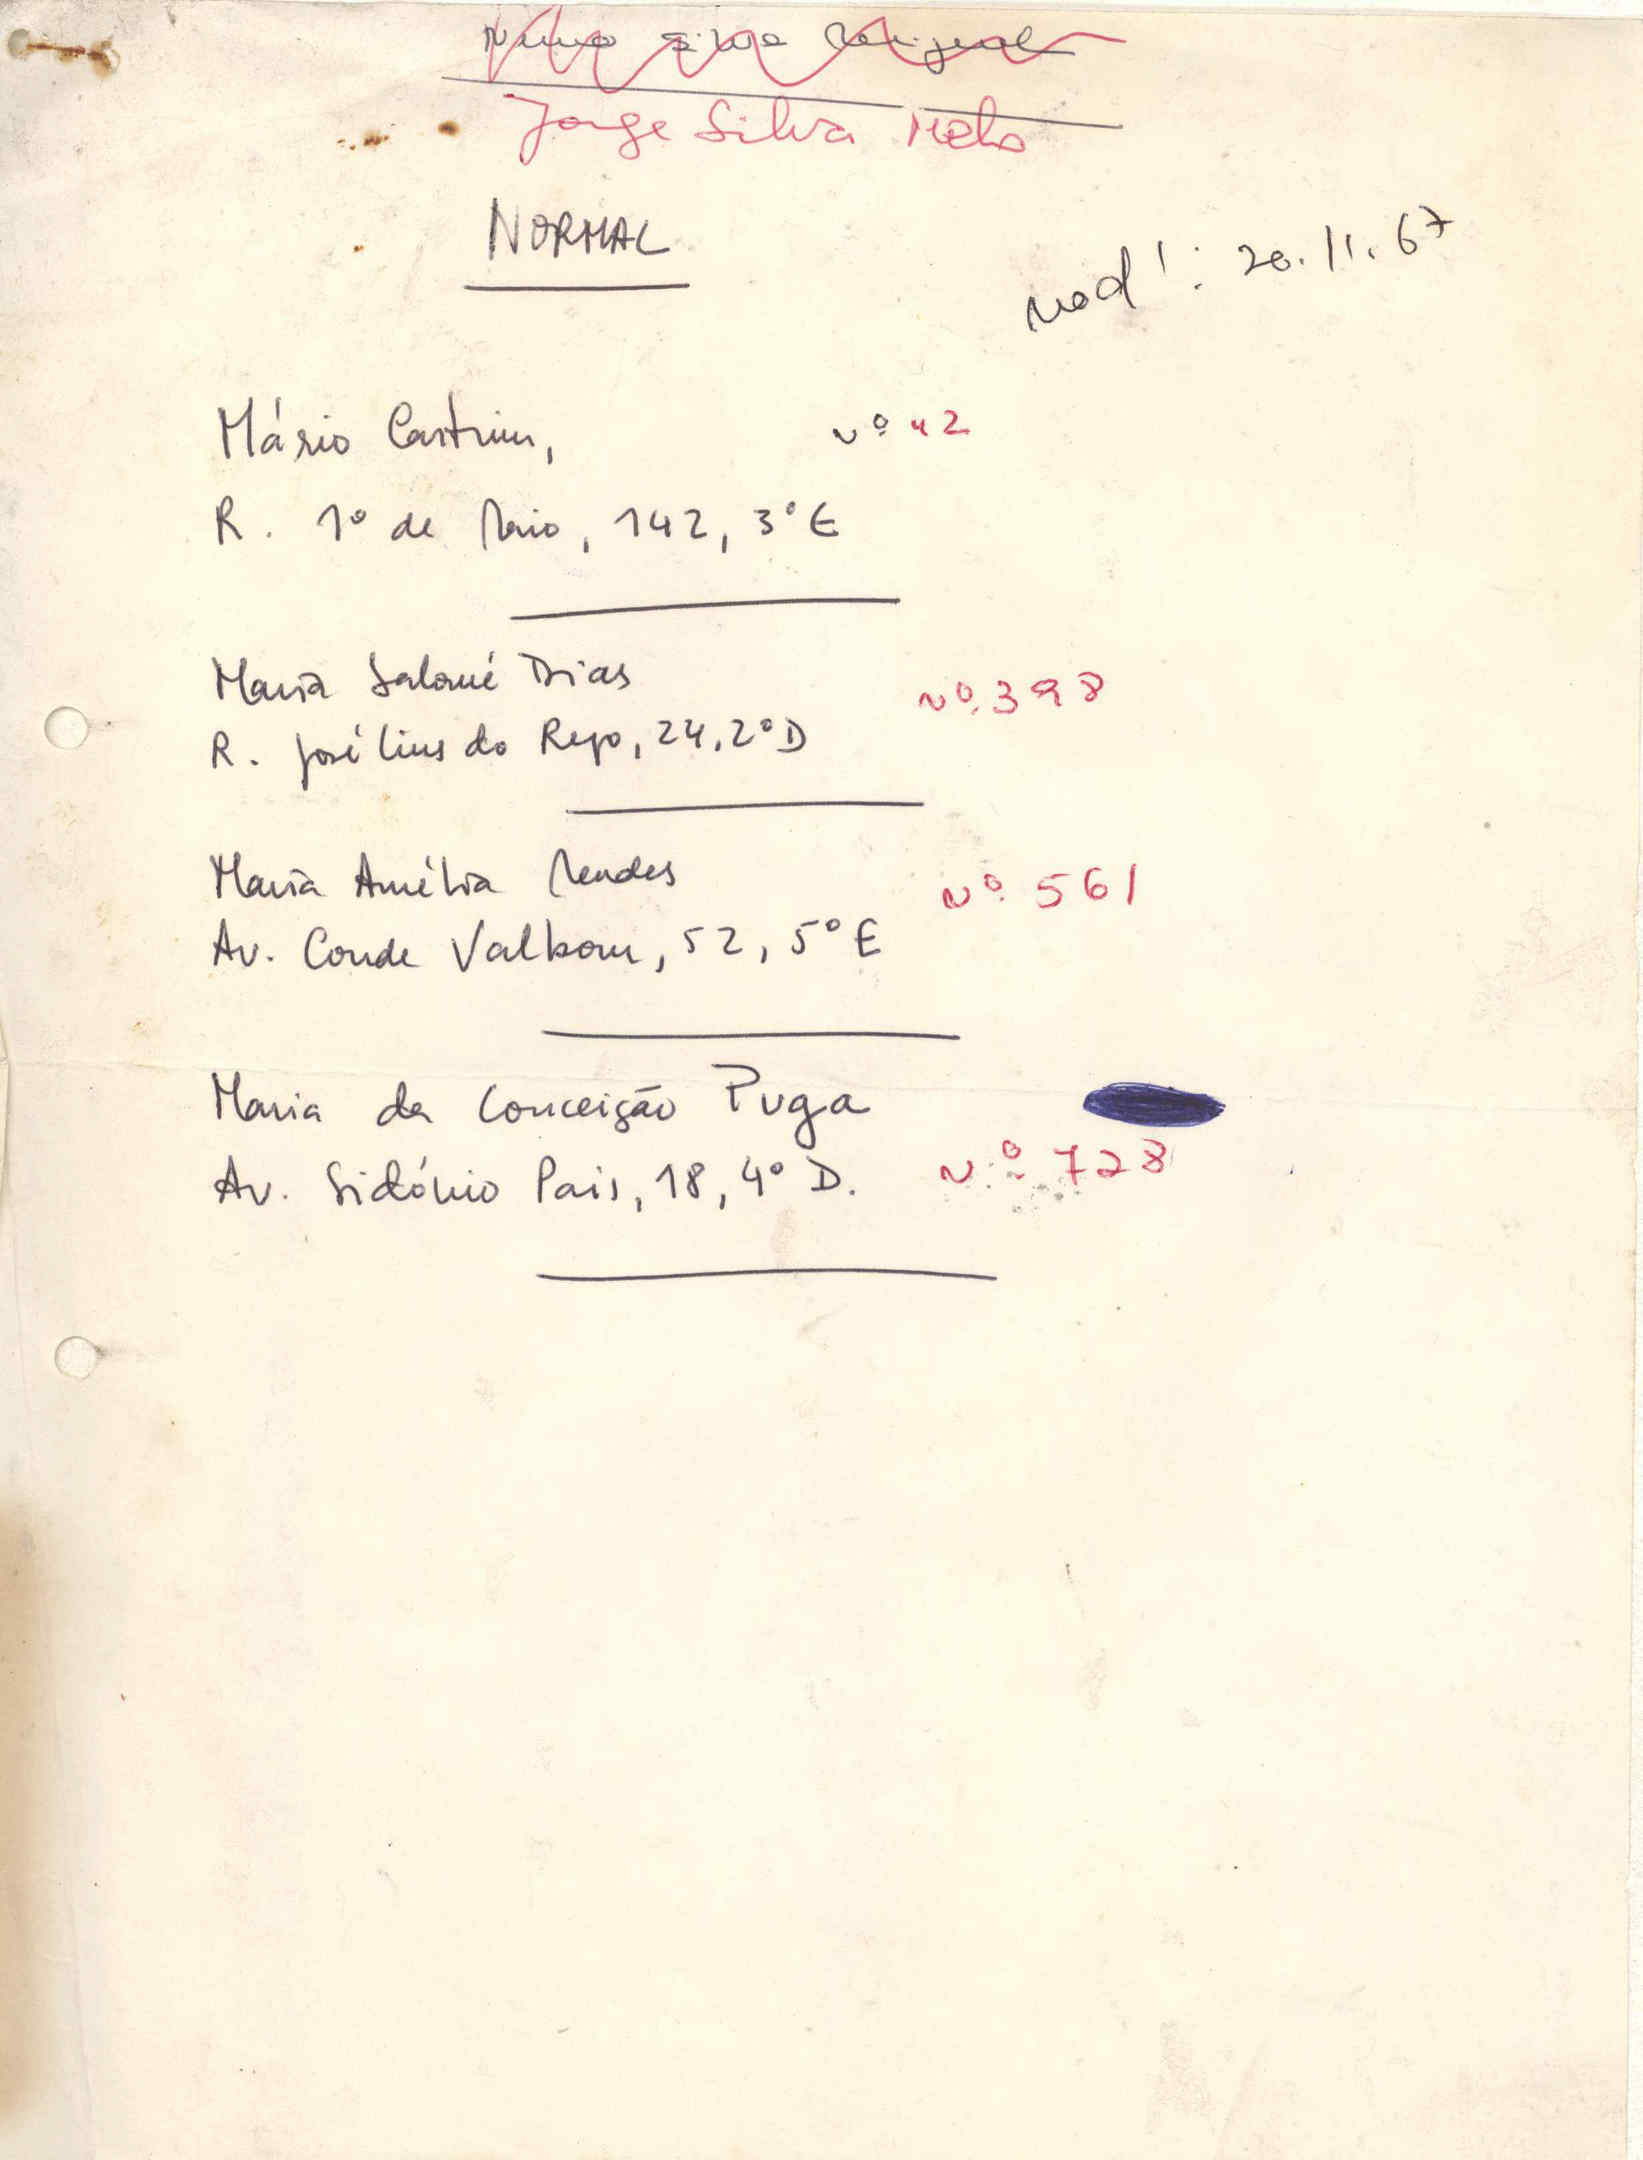 Jorge Silva Melo
NORMAL
20.11.67
Mário Castrim, nº 42
R. 1º de Maio, 142, 3º E
Maria Salomé Dias nº 398
R. José Lins do Rego, 24, 2º D
Maria Amélia Mendes nº 561
Av. Conde Valbom, 52, 5º E
Maria da Conceição Puga
Av. Sidónio Pais, 18, 4º D. Nº 728